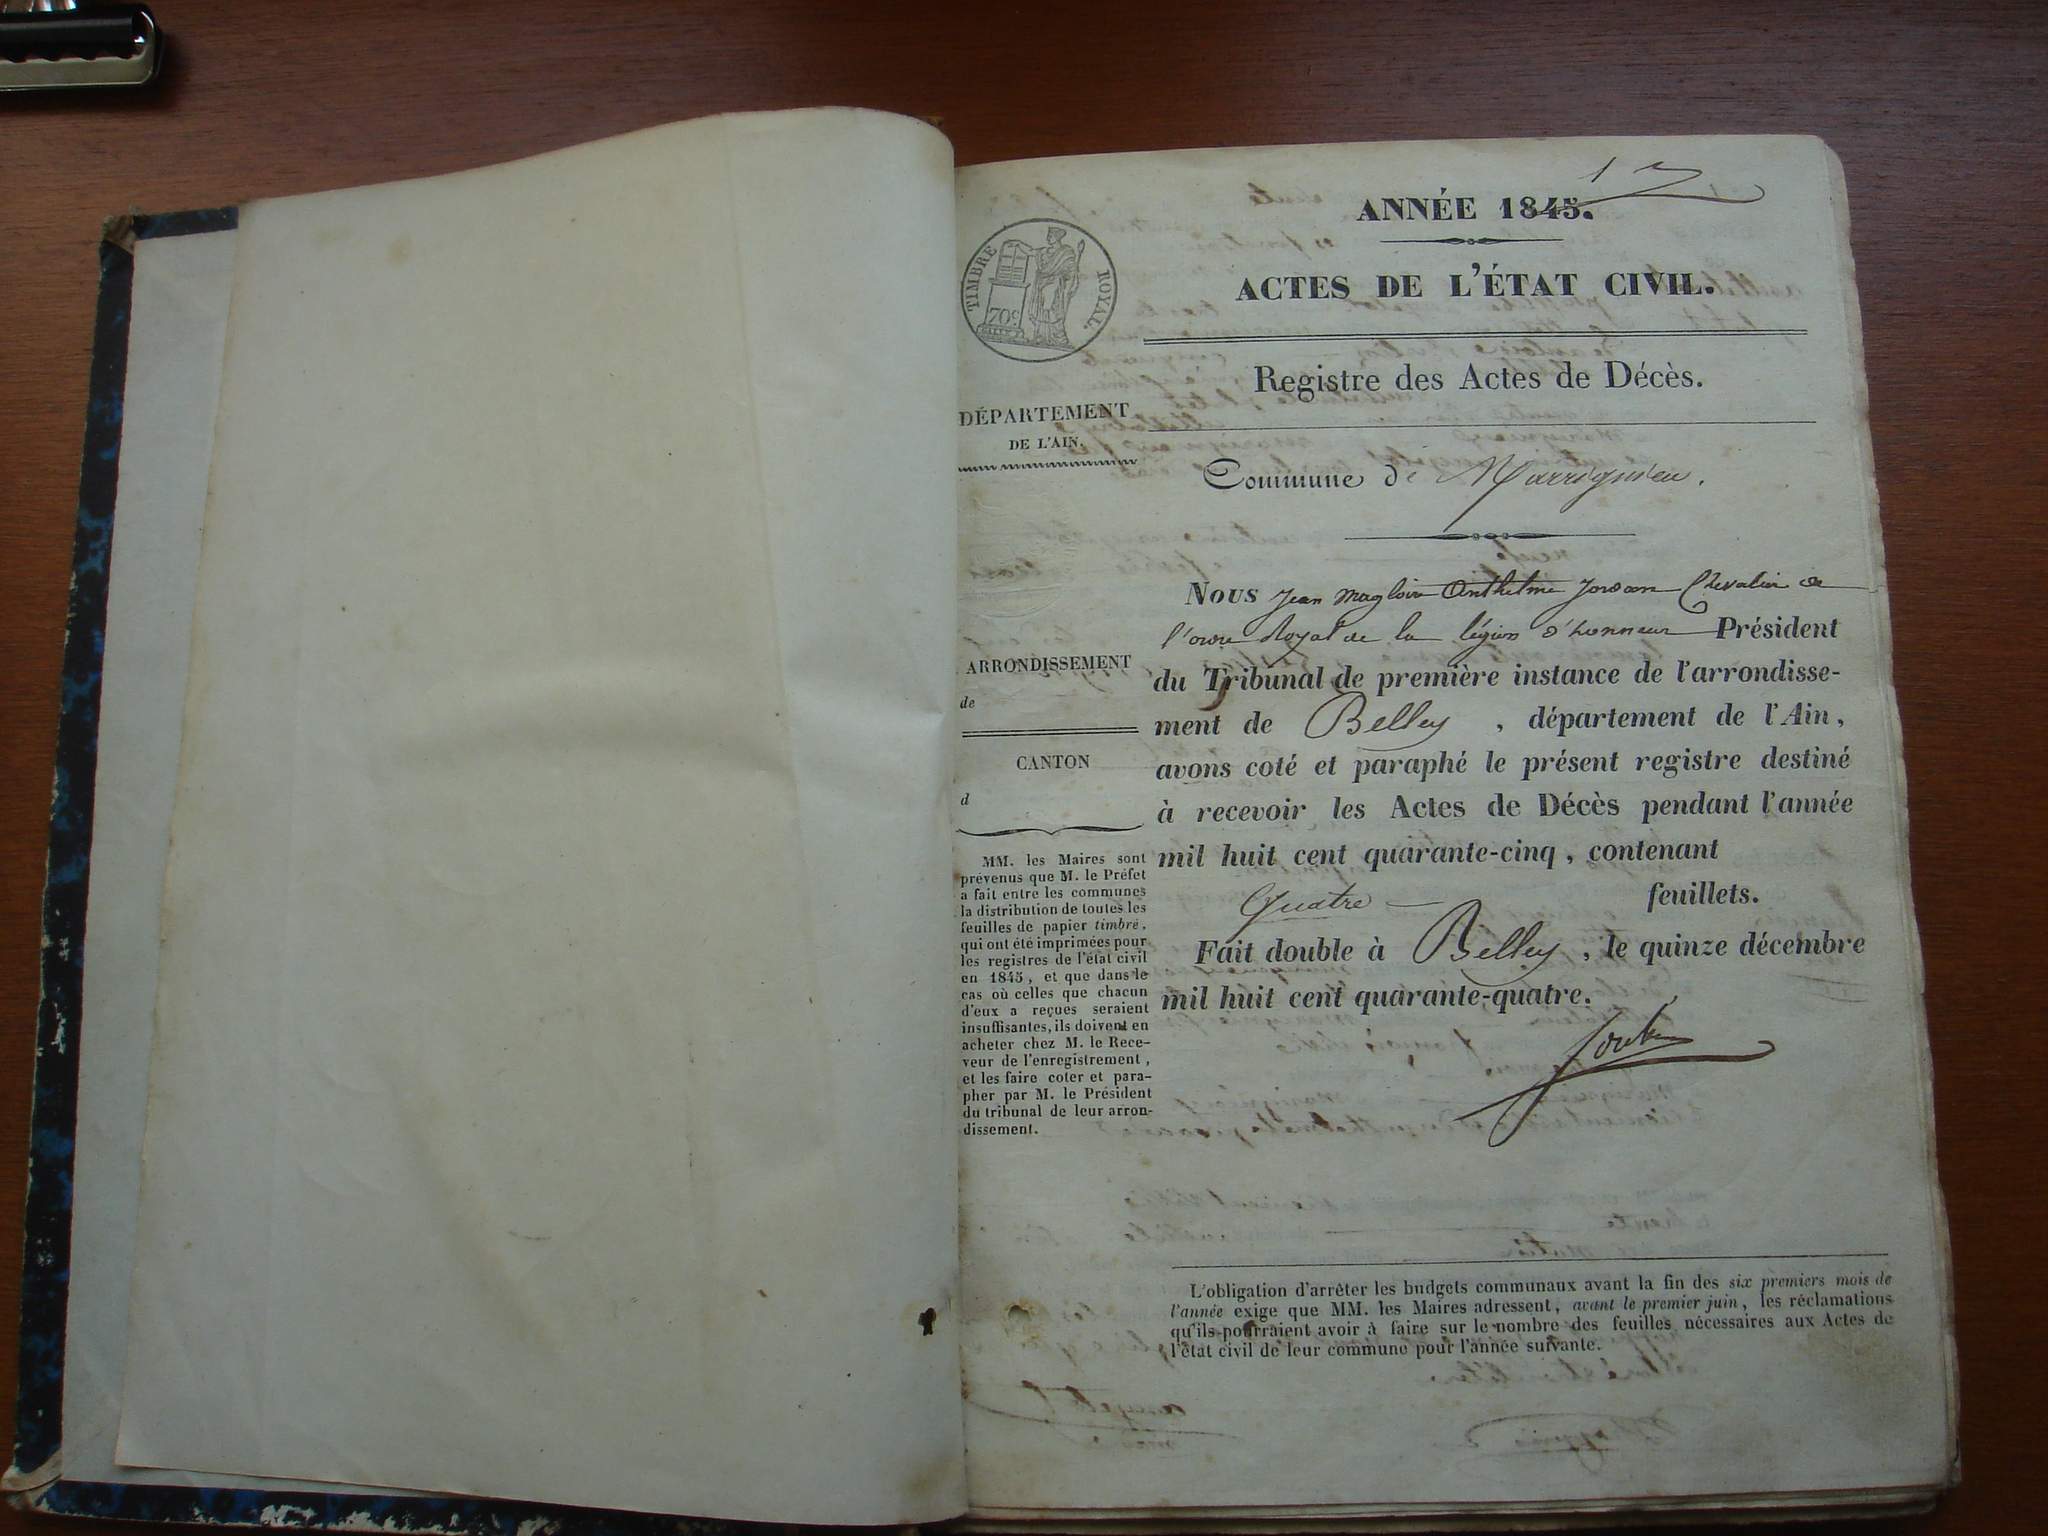 ANNÉE 1845.
ACTES DE L'ÉTAT CIVIL.
TIMBRE ROYAL.
70c
Registre des Actes de Décès.
DÉPARTEMENT
DE L'AIN.
Commune de Marrignieu.
Nous Jean Magloire Anthelme Jordan Chevalier de
l'ordre Royal de la légion d'honneur Président
du Tribunal de première instance de l'arrondisse-
ment de Belley, département de l'Ain,
avons coté et paraphé le présent registre destiné
à recevoir les Actes de Décès pendant l'année
mil huit cent quarante-cinq, contenant
Quatre feuillets.
Fait double à Belley, le quinze décembre
mil huit cent quarante-quatre.
ARRONDISSEMENT
de
CANTON
d
MM. les Maires sont
prévenus que M. le Préfet
a fait entre les communes
la distribution de toutes les
feuilles de papier timbré,
qui ont été imprimées pour
les registres de l'état civil
en 1845, et que dans le
cas où celles que chacun
d'eux a reçues seraient
insuffisantes, ils doivent en
acheter chez M. le Rece-
veur de l'enregistrement,
et les faire coter et para-
pher par M. le Président
du tribunal de leur arron-
dissement.
L'obligation d'arrêter les budgets communaux avant la fin des six premiers mois de
l'année exige que MM. les Maires adressent, avant le premier juin, les réclamations
qu'ils pourraient avoir à faire sur le nombre des feuilles nécessaires aux Actes de
l'état civil de leur commune pour l'année suivante.